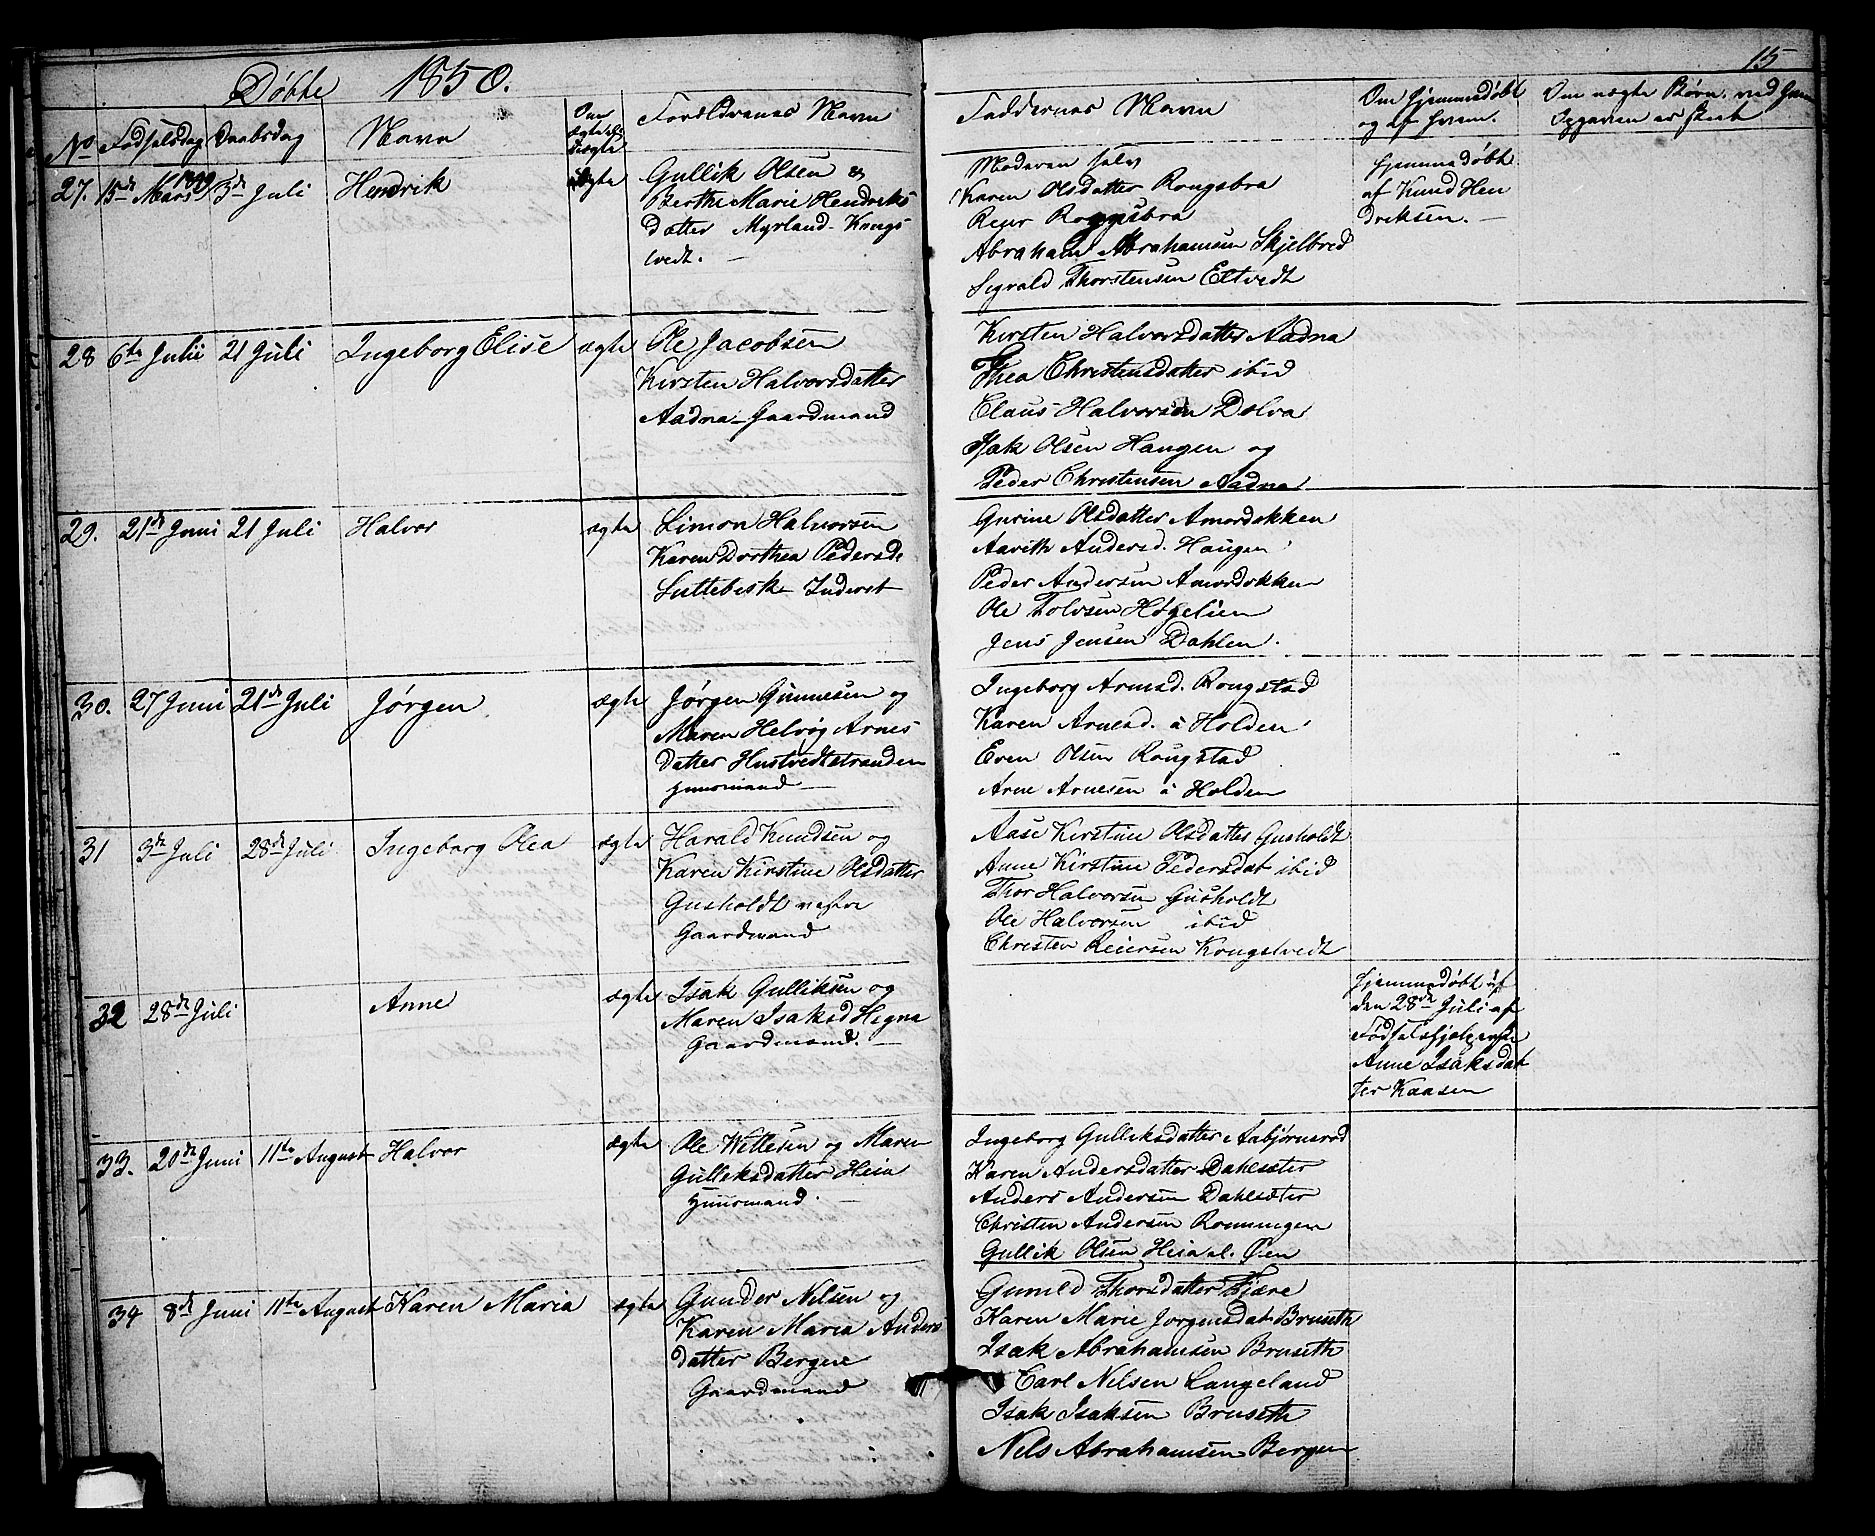 15
Døbte 1850.
No Fødselsdag Daabsdag Navn Om ægte el. uægte Forældrenes Navn Faddernes Navn Om hjemmedøbt og af hvem. Om uægte Børn, ved
27. 15de Mars 3de Juli Hendrik ægte
Gullik Olsen &
Berthe Marie Hendriks
Datter Myrland Kongs
tvedt.
Moderen selv
Karen Olsdatter Rongsbra
Abraham Abrahamsen Skjelbred
Sigvald Thorstensen Eltvedt
Hjemmedøbt
af Knud Hen
driksen.
28 6te Julii 21 Juli Ingeborg Elise ægte
Ole Jacobsen
Kirsten Halvorsdatter
Aadna Gaardmand
Kirsten Halvorsdatter Aadna
Thea Christensdatter ibid
Claus Halvorsen Dolva
Isak Olsen Haugen og
Peder Christensen Aadna
29. 21de Juni 21 Juli Halvor ægte
Simon Halvorsen
Karen Dorthea Pedersd.
Luttebæsk Inderst
Gurine Olsdatter Amordokken
Aarith Andersd. Haugen
Peder Andersen Amordokken
Ole Tolvsen Høgelien
Jens Jensen Dahlen.
30. 27 Juni 21de Juli Jørgen ægte
Jørgen Gunnesen og
Maren Helvig Arnes
datter Hustvedtstranden
Huusmand
Ingeborg Arnesd. Rougstad
Karen Arnesd. a Holden
Even Olsen Rougstad
Arne Arnesen a Holden
31 3de Juli 28de Juli Ingeborg Olea ægte
Harald Knudsen og
Karen Kirstine Olsdatter
Gusholdt vestre
Gaardmand
Aase Kirstine Olsdatter Gusholdt
Anne Kirstine Pedersdat ibid
Thor Halvorsen Gusholdt
Ole Halvorsen ibid
Christen Reiersen Kongstvedt
32 28de Juli Anne ægte
Isak Gulliksen og
Maren Isaksd Hegna
Gaardmand.
Hjemmedøbt
den 28de Juli af
Fødselshjelperske
Anne Isaksdat
ter Kaasen
33. 20de Juni 11te August Halvor ægte
Ole Wetlesen og Maren
Gulleksdatter Heia
Huusmand.
Ingeborg Gulleksdatter Aabjørnsrød
Karen Andersdatter Dahlsæter
Anders Andersen Dahlsæter
Christen Andersen Ronningen
Gullik Olsen Heia e. Øen
34 8de Juni 11te August Karen Maria ægte
Gunder Nilsen og
Karen Maria Anders
datter Bergene
Gaardmand
Gunild Thorsdatter Fjære
Karen Marie Jorgensdat Bruseth
Isak Abrahamsen Bruseth
Carl Nilsen Langeland
Isak Isaksen Bruseth
Nels Abrahamsen Bergen